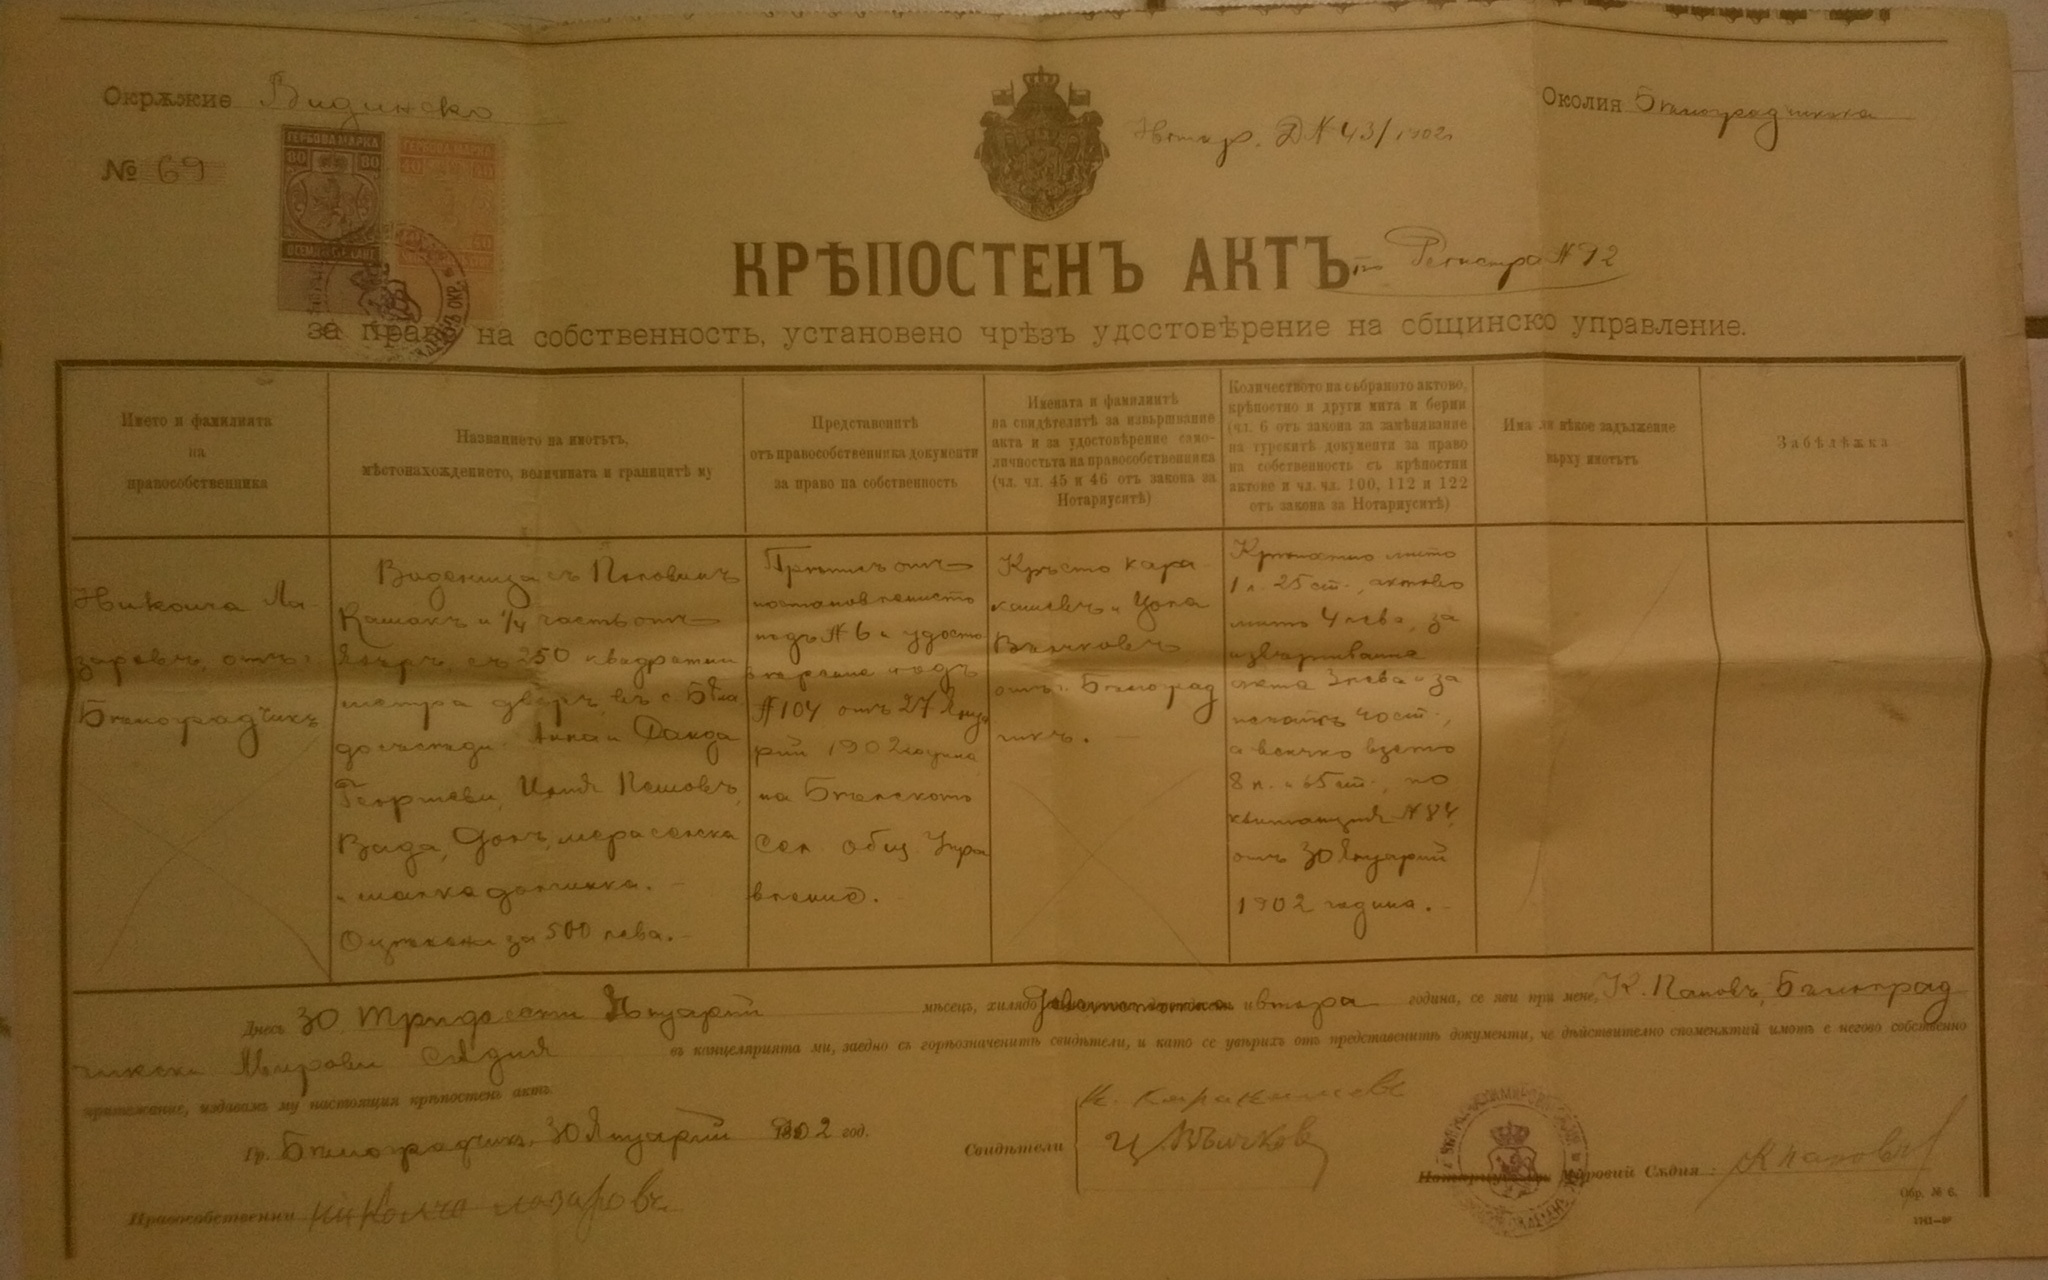 Окрѫжие Видинско
Околия Бѣлоградчишка
Нотар. Д N 43/1902г
№ 69
ГЕРБОВА МАРКА
80 80
ГЕРБОВА МАРКА
КРѢПОСТЕНЪ АКТЪ по Регистра N 92
за право на собственность, установено чрѣзъ удостовѣрение на общинско управление.
Името и фамилията
на
правособственика
Названието на имотътъ,
мѣстонахождението, величината и границитѣ му
Представенитѣ
отъ правособственика документи
за право на собственность
Имената и фамилиитѣ
на свидѣтелитѣ за извършвание
акта и за удостовѣрение само-
личностьта на правособственика
(чл. чл. 45 и 46 отъ закона за
Нотариуситѣ)
Количеството на събраното актово,
крѣпостно и други мита и берии
(чл. 6 отъ закона за замѣнявание
на турскитѣ документи за право
на собственость съ крѣпостни
актове и чл. чл. 100, 112 и 122
отъ закона за Нотариуситѣ)
Има ли нѣкое задължение
върху имотътъ
Забѣлѣжка
Николча Ла-
заровъ, отъ г.
Бѣлоградчикъ
Воденица съ Половинъ
Камъкъ и 1/4 часть отъ
съ 250 квадратни
метра дворъ, въ с. Бѣла
до съседи: Анна и
Георгиеви, Илия Пешовъ,
Вада, Долъ, мера селска
и малка долчинка.
Оценена за 500 лева.
Прѣписъ отъ
постановлението
подъ N 6 и удосто
верение подъ
N 104 отъ 27 Януа
рий 1902 година
на Бѣлското
Сел. общ. Упра
вление.
Кръсто Кара
кашевъ и Цона
Вълчковъ
отъ г. Бѣлоград
чикъ.
Крѣпостно мито
1 л. 25 ст., актово
мито 4 лева, за
извършвание
акта 3 лева и за
40 ст.,
а всичко взето
8 л. и 65 ст., по
квитанция N 84
отъ 30 Януарий
1902 година.
Днесь 30 Тридесети Януарий мѣсецъ, хилядо деветстотна и втора година, се яви при мене, К. Паповъ, Бѣлоград
чикски Мирови Сѫдия въ канцелярията ми, заедно съ горѣозначенитѣ свидѣтели, и като се увѣрихъ отъ представенитѣ документи, че дѣйствително споменѫтий имотъ е негово собственно
притежание, издавамъ му настоящия крѣпостенъ актъ.
гр. Бѣлоградчикъ, 30 Януарий 1902 год.
Свидѣтели
К. Каракашевъ
Ц. Вълчков
Нотариусъ Мировий Сѫдия: КПаповъ
Правособственикъ Николча Лазаровъ
Обр. № 6.